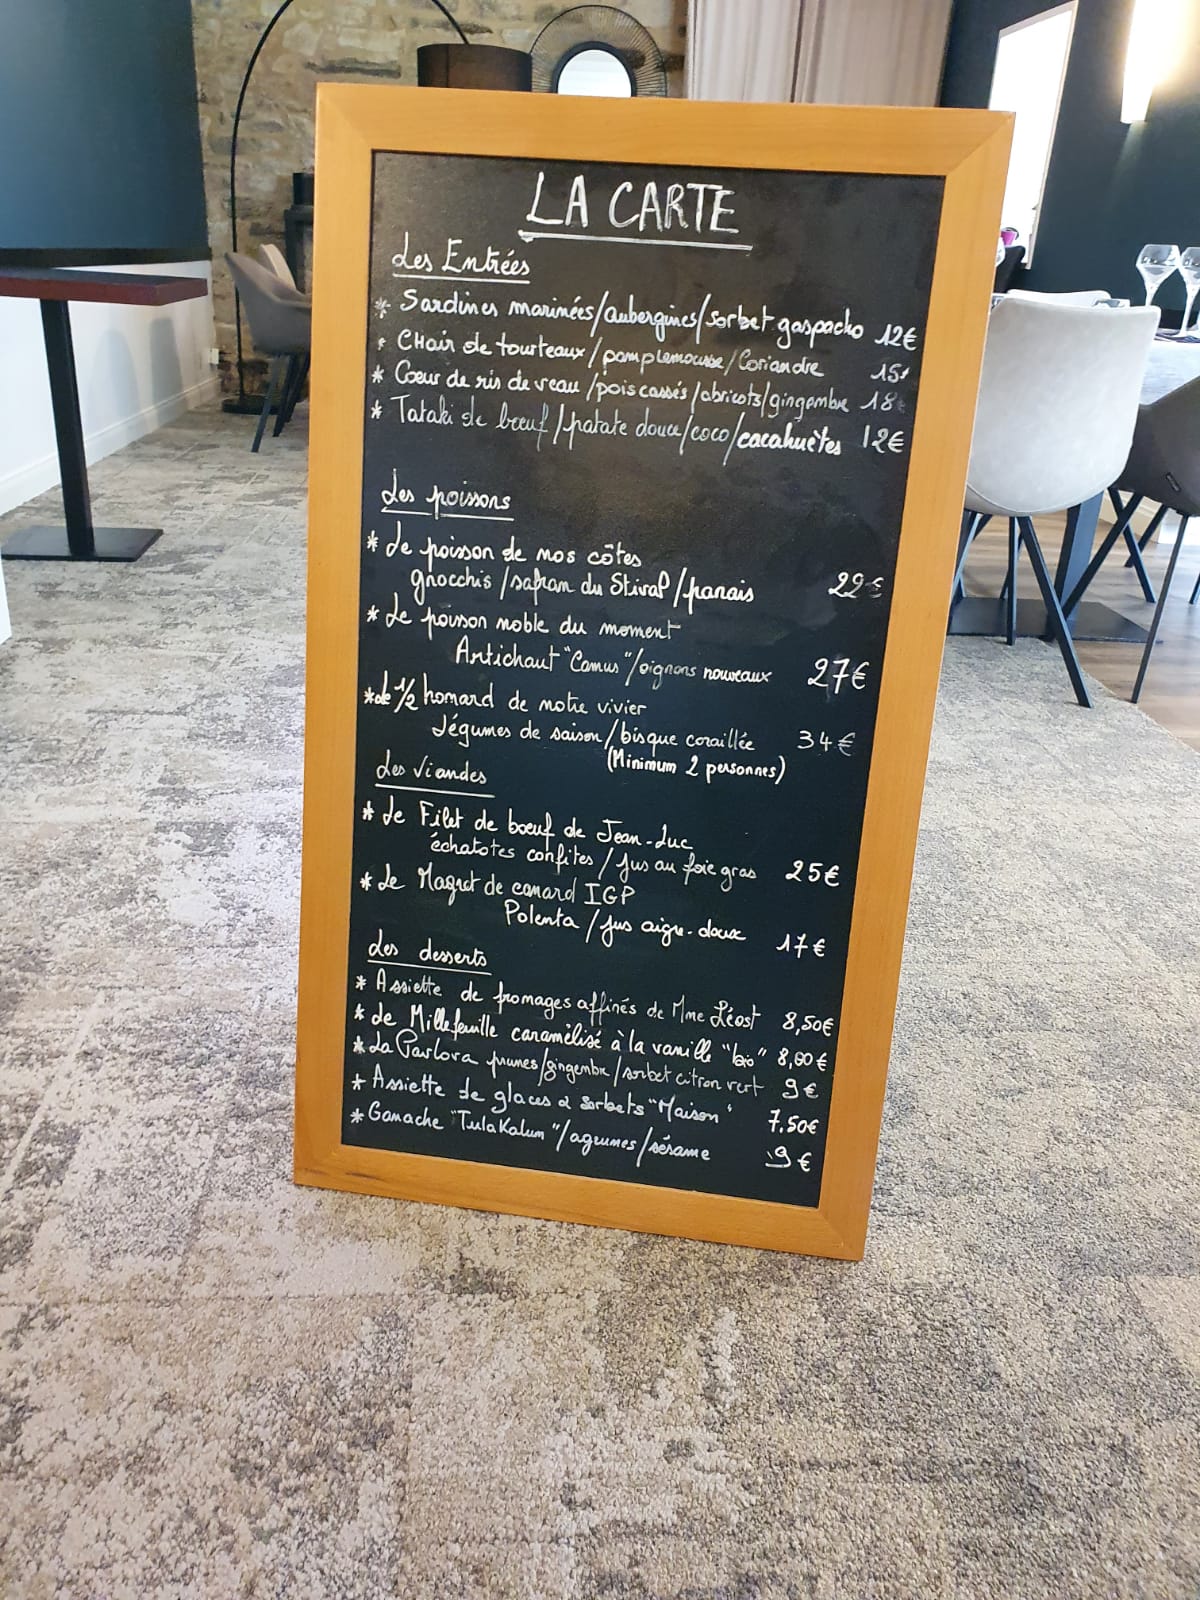 LA CARTE
Les Entrées
* Sardines marinées/aubergines/sorbet gaspacho 12€
* CHair de tourteaux/pamplemousse/Coriandre 15€
* Coeur de ris de veau/pois cassés/abricots/gingembre 18€
* Tataki de bœuf/patate douce/coco/cacahuètes 12€
Les poissons
* Le poisson de nos côtes
gnocchis/safran du Stival/panais 22€
* Le poisson noble du moment
Artichaut "Camus"/oignons nouveaux 27€
* Le 1/2 homard de notre vivier
Légumes de saison/bisque coraillée 34€
(Minimum 2 personnes)
Les Viandes
* Le Filet de bœuf de Jean-Luc
échalotes confites/Jus au foie gras 25€
* Le Magret de canard IGP
Polenta/jus aigre-doux 17€
Les desserts
* Assiette de fromages affinés de Mme Léost 8,50€
* Le Millefeuille caramélisé à la vanille "bio" 8,00€
* La Pavlova prunes/gingembre/sorbet citron vert 9€
* Assiette de glaces & sorbets "Maison" 7.50€
* Ganache "TulaKalum"/agrumes/sésame 9€